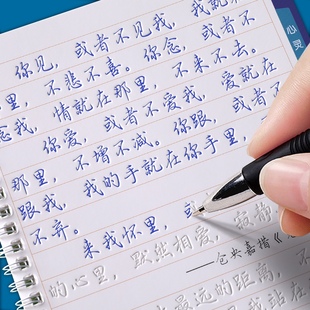 你见，或者不见我，我就
里，不悲不喜。你念，或者不
念我，情就在那里，不来不去。
你爱，或者不爱我，爱就在
那里，不增不减。你跟，或者不
跟我，我的手就在你手里，不
不弃。
来我怀里，或
的心里，默然相爱，寂静
——仓央嘉措《
最远的距离，不
我站在
心灵